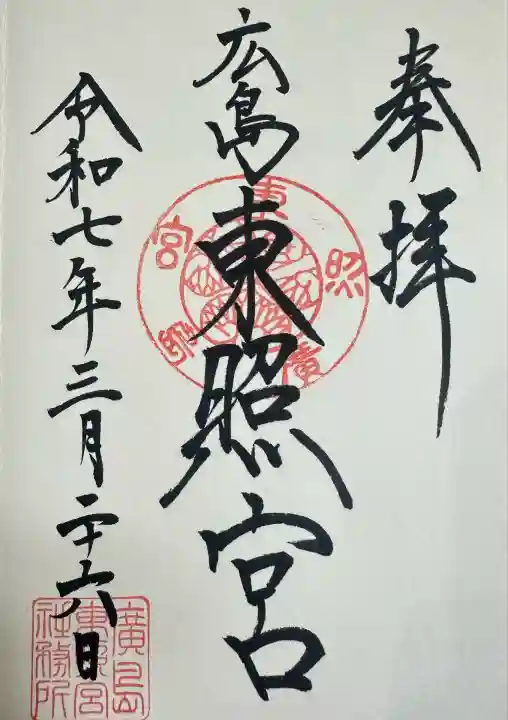 奉拝
広島東照宮
東照宮
廣島
令和七年三月二十六日
廣島
東照宮
社務所